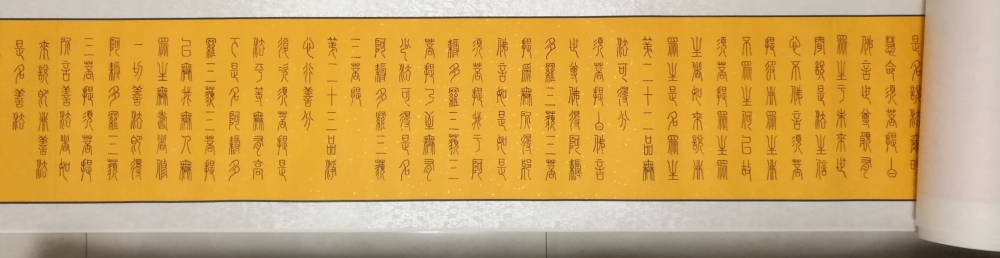 是名說法爾時
慧命須菩提白
佛言世尊頗有
眾生于未來世
聞說是法生信
心不佛言須菩
提彼非眾生非
不眾生何以故
須菩提眾生眾
生者如來說非
眾生是名眾生
第二十二品無
法可得分
須菩提白佛言
世尊佛得阿耨
多羅三藐三菩
提為無所得耶
佛言如是如是
須菩提我于阿
耨多羅三藐三
菩提乃至無有
少法可得是名
阿耨多羅三藐
三菩提
第二十三品淨
心行善分
復次須菩提是
法平等無有高
下是名阿耨多
羅三藐三菩提
以無我無人無
眾生無壽者修
一切善法則得
阿耨多羅三藐
三菩提須菩提
所言善法者如
來說即非善法
是名善法